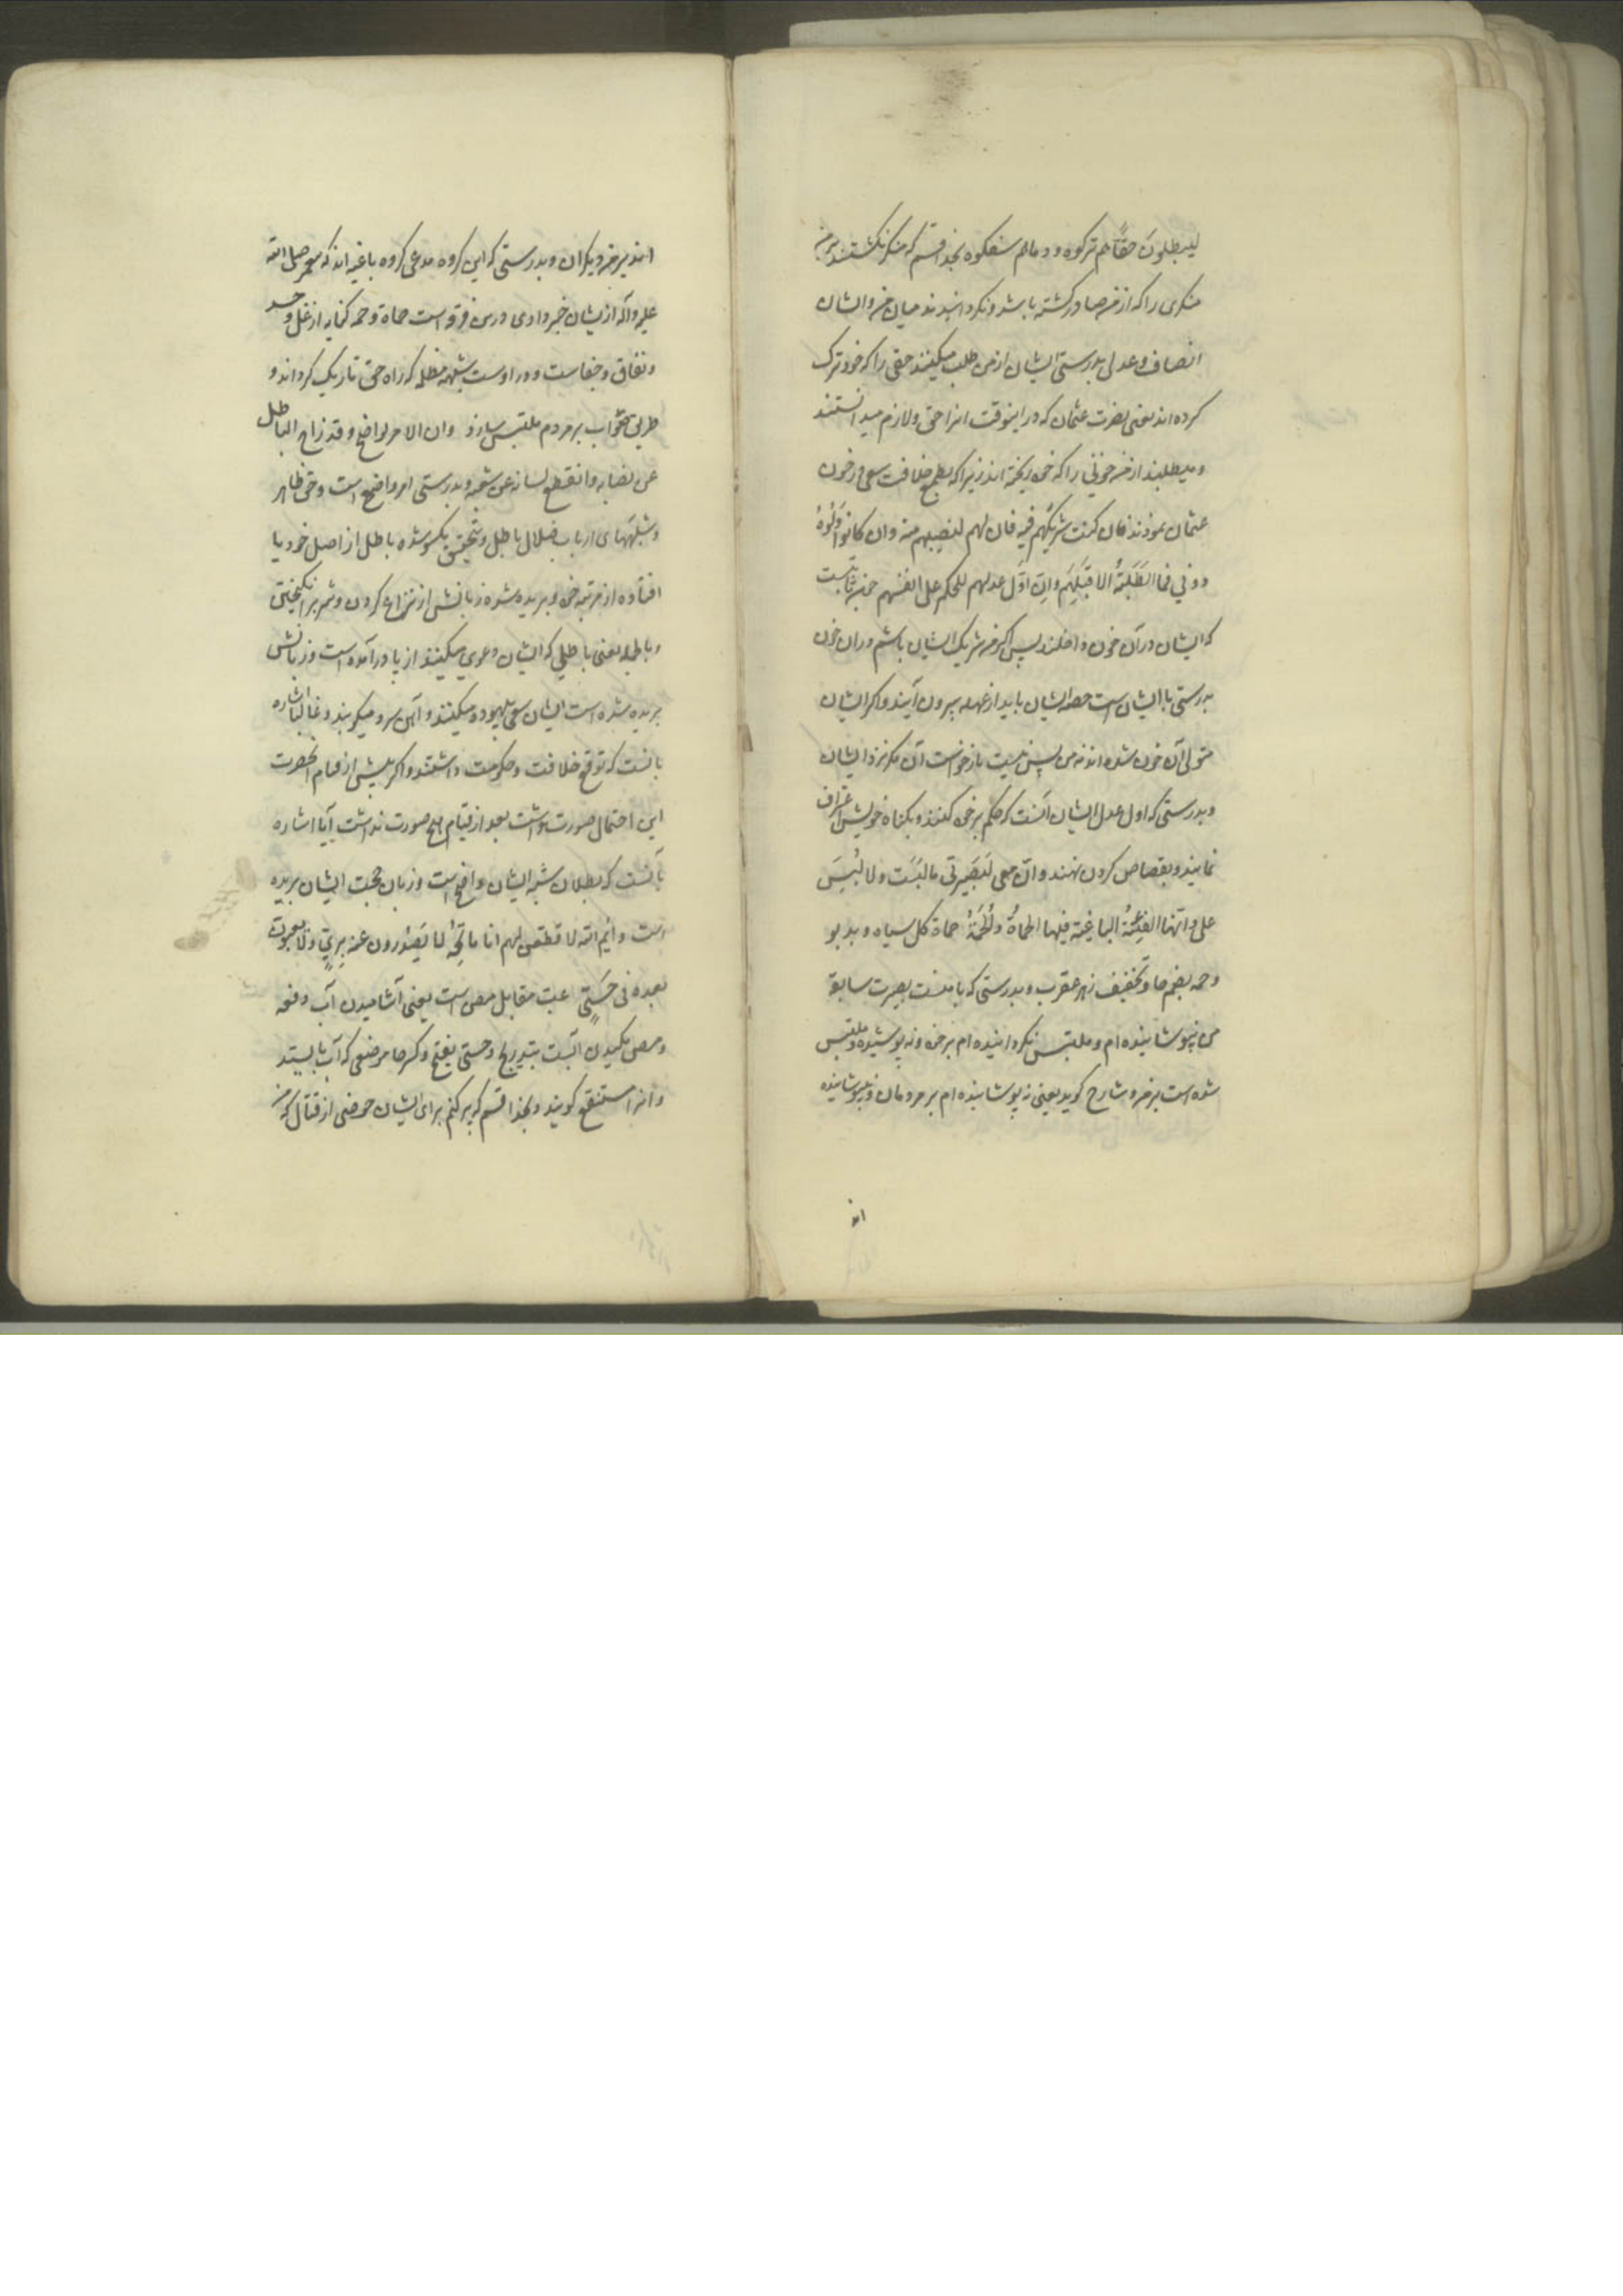 لیطلبون حقا هم ترکوه و دما هم سفکوه بخدا قسم که منکر نگشتند بر من
منکری را که از من صادر گشته باشد و نگردانیدند میان من و ایشان
انصاف و عدل بدرستی ایشان از من طلب میکنند حقی را که خود ترک
کرده اند یعنی نصرت عثمان که در اینوقت انرا حق و لازم میدانستند
و میطلبند از من خونی را که خود ریخته اند زیرا که بطمع خلافت سعی در خون
عثمان نمودند فان کنت شریکهم فیه فان لهم لنصیبهم منه و ان کانوا ولوه
دونی فما الطلبة الا قبلهم و ان اول عدلهم للحکم علی انفسهم
که ایشان در آن خون داخلند پس اگر من شریک ایشان باشم در ان خون
بدرستی با ایشان است حصه ایشان باید از عهده بیرون آیند و اگر ایشان
متولی آن خون شده اند نه من پس نیست بازخواست آن مگر نزد ایشان
و بدرستی که اول عدل ایشان آنست که حکم بر خود کنند و بگناه خویش اعتراف
نمایند و بقصاص گردن نهند و ان معی لبصیرتی ما لبست و لا لبس
علی و انها الفئة الباغیة فیها الحماة و الحمة حماة گل سیاه و بدبو
و حمه بضم حا و تخفیف زهر عقرب و بدرستی که با منست بصیرت سابقه
من نپوشانیده ام و ملتبس نگردانیده ام بر خود و نه پوشیده و ملتبس
شده است بر من و شارح گوید یعنی نه پوشانیده ام بر مردمان و نپوشانیده
اند
اند بر من دیگران و بدرستی که این گروه مدعی گروه باغیه اند که پیغمبر صلی الله
علیه و آله ازیشان خبر دادی درین فرقه است حماة و حمه کنایه از غل و حسد
و نفاق و جفاست و در اوست شبهه مظلمه که راه حق تاریک گرداند و
طریق صواب بر مردم ملتبس سازد و ان الامر لواضح و قد زاح الباطل
عن نصابه و انقطع لسانه عن شغبه و بدرستی امر واضح است و حق ظاهر
و شبهتهای ارباب ضلال باطل و بتحقیق یکسو شده باطل از اصل خود یا
افتاده از مرتبه خود و بریده شده زبانش از نزاع کردن و شر برانگیختن
و باطله یعنی باطلی که ایشان دعوی میکنند از پا درآمده است و زبانش
بریده شده است ایشان سعی بیهوده میکنند و آهن سرد میکوبند و غالبا اشاره
بانست که توقع خلافت و حکومت داشتند و اگر پیش از قیام انحضرت
این احتمال صورت داشت بعد از قیام هیچ صورت نداشت آیا اشاره
بآنست که بطلان شبه ایشان واضح است و زبان حجت ایشان بریده
است و ایم الله لافطقن لهم انا ماتحه لا یصدرون عنه بری و لا یعبون
بعده فی حسی عبت مقابل مص است یعنی آشامیدن آب دفعه
و مص مکیدن آبست بتدریج و حسی بفتح و کسر حا موضعی که آب بایستد
و انرا مستنقع گویند و بخدا قسم که پر کنم برای ایشان حوضی از قتال که من